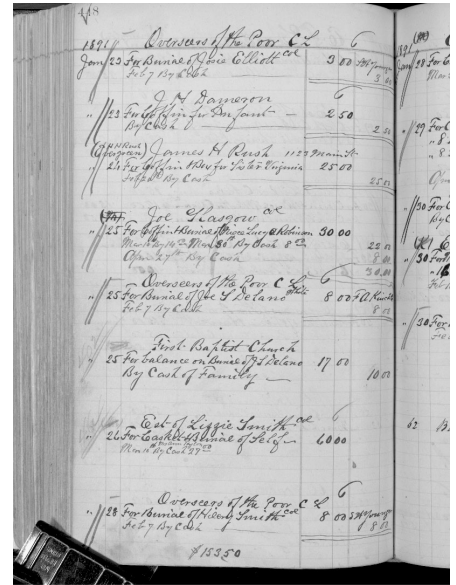 418
1891 Overseers of the Poor C L 6
Jan 23 For Burial of Josie Elliott col 3 00
Feb 7 By Cash 3 00
J H Dameron 6
" 23 For Coffin for Infant — 2 50
By Cash — 2 50
(Evergreen) James H Rush 1123 Main St
" 24 For Coffin & Box for Sister Virginia 25 00
By Cash 25 00
(Pd) Joe Glasgow col
" 25 For Coffin & Burial of Niece Lucy A Robinson 30 00
March By 14 00 Mar 30th By Cash 8 00 22 00
April 27th By Cash 8 00
30 00
Overseers of the Poor C L White 6
" 25 For Burial of Joe S Delano 8 00
Feb 7 By Cash 8 00
First Baptist Church
" 25 For balance on Burial of J S Delano 17 00
By Cash of Family — 10 00
Est of Lizzie Smith col 6
" 26 For Casket & Burial of Self — 60 00
By Cash
Overseers of the Poor C L 6
" 28 For Burial of Hilery Smith col 8 00
Feb 7 By Cash 8 00
$153.50
1891
Jan 28 For
" 29 For
" 30 For
By
" 30 For
" 30 For